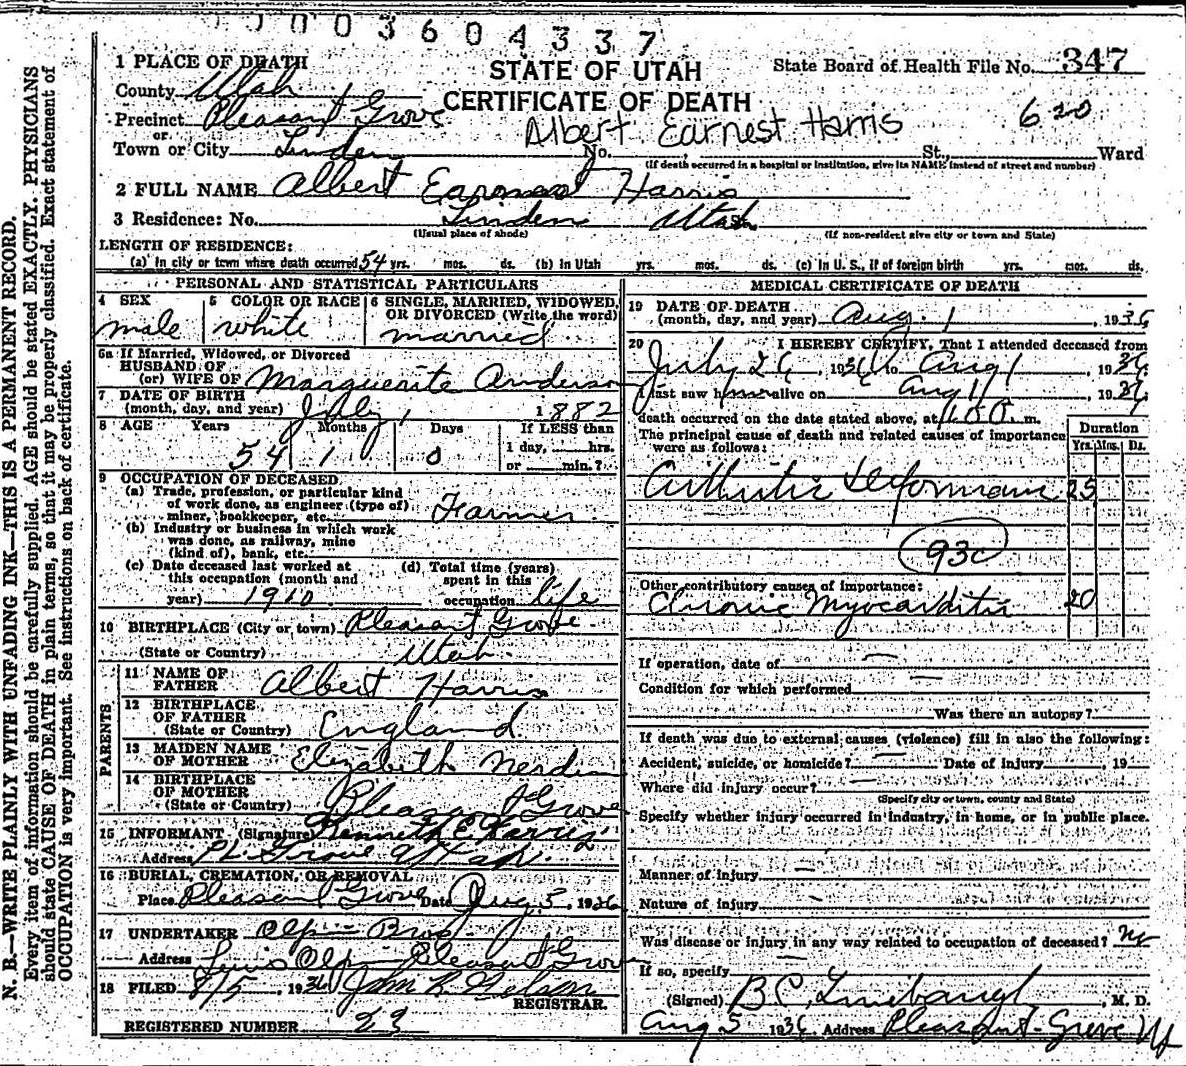 003604337
1 PLACE OF DEATH
STATE OF UTAH
State Board of Health File No. 347
County Utah
CERTIFICATE OF DEATH
Precinct Pleasant Grove
620
Albert Earnest Harris
or
Town or City Linden No. St., Ward
(If death occurred in a hospital or institution, give its NAME instead of street and number)
2 FULL NAME Albert Earnest Harris
3 Residence: No. Linden Utah St.
(Usual place of abode) (If non-resident give city or town and State)
LENGTH OF RESIDENCE:
(a) In city or town where death occurred 54 yrs. mos. ds. (b) In Utah yrs. mos. ds. (c) In U. S., if of foreign birth yrs. mos. ds.
PERSONAL AND STATISTICAL PARTICULARS
4 SEX 5 COLOR OR RACE 6 SINGLE, MARRIED, WIDOWED,
OR DIVORCED (Write the word)
male white married
6a If Married, Widowed, or Divorced
HUSBAND OF
(or) WIFE OF Marguerite Anderson
7 DATE OF BIRTH
(month, day, and year) July 1 1882
8 AGE Years Months Days If LESS than
1 day, hrs.
54 1 0 or min.?
9 OCCUPATION OF DECEASED
(a) Trade, profession, or particular kind
of work done, as engineer (type of)
miner, bookkeeper, etc. Farmer
(b) Industry or business in which work
was done, as railway, mine
(kind of), bank, etc.
(c) Date deceased last worked at
this occupation (month and
year) 1910
(d) Total time (years)
spent in this
occupation life
10 BIRTHPLACE (City or town) Pleasant Grove
(State or Country) Utah
PARENTS
11 NAME OF
FATHER Albert Harris
12 BIRTHPLACE
OF FATHER
(State or Country) England
13 MAIDEN NAME
OF MOTHER Elizabeth
14 BIRTHPLACE
OF MOTHER
(State or Country) Pleasant Grove
15 INFORMANT (Signature) Kenneth E Harris
Address Pl. Grove Utah.
16 BURIAL, CREMATION, OR REMOVAL
Place Pleasant Grove Date Aug 5, 1936
17 UNDERTAKER Olpin Bros
Address Olpin Pleasant Grove
18 FILED 8/5, 1936
REGISTRAR
REGISTERED NUMBER 23
MEDICAL CERTIFICATE OF DEATH
19 DATE OF DEATH
(month, day, and year) Aug. 1, 1936
20 I HEREBY CERTIFY, That I attended deceased from
July 26, 1936 to Aug 1, 1936
I last saw him alive on Aug 1, 1936
death occurred on the date stated above, at m.
The principal cause of death and related causes of importance
were as follows:
Duration
Yrs. Mos. Ds.
Arthritis Deformans 25
93c
Other contributory causes of importance:
Chronic Myocarditis 20
If operation, date of
Condition for which performed
Was there an autopsy?
If death was due to external causes (violence) fill in also the following:
Accident, suicide, or homicide? Date of injury , 19
Where did injury occur?
(Specify city or town, county and State)
Specify whether injury occurred in industry, in home, or in public place.
Manner of injury
Nature of injury
Was disease or injury in any way related to occupation of deceased? no
If so, specify
(Signed) B C Linebaugh, M. D.
Aug 5 1936 Address Pleasant Grove Ut
N. B.—WRITE PLAINLY WITH UNFADING INK—THIS IS A PERMANENT RECORD.
Every item of information should be carefully supplied. AGE should be stated EXACTLY. PHYSICIANS
should state CAUSE OF DEATH in plain terms, so that it may be properly classified. Exact statement of
OCCUPATION is very important. See instructions on back of certificate.